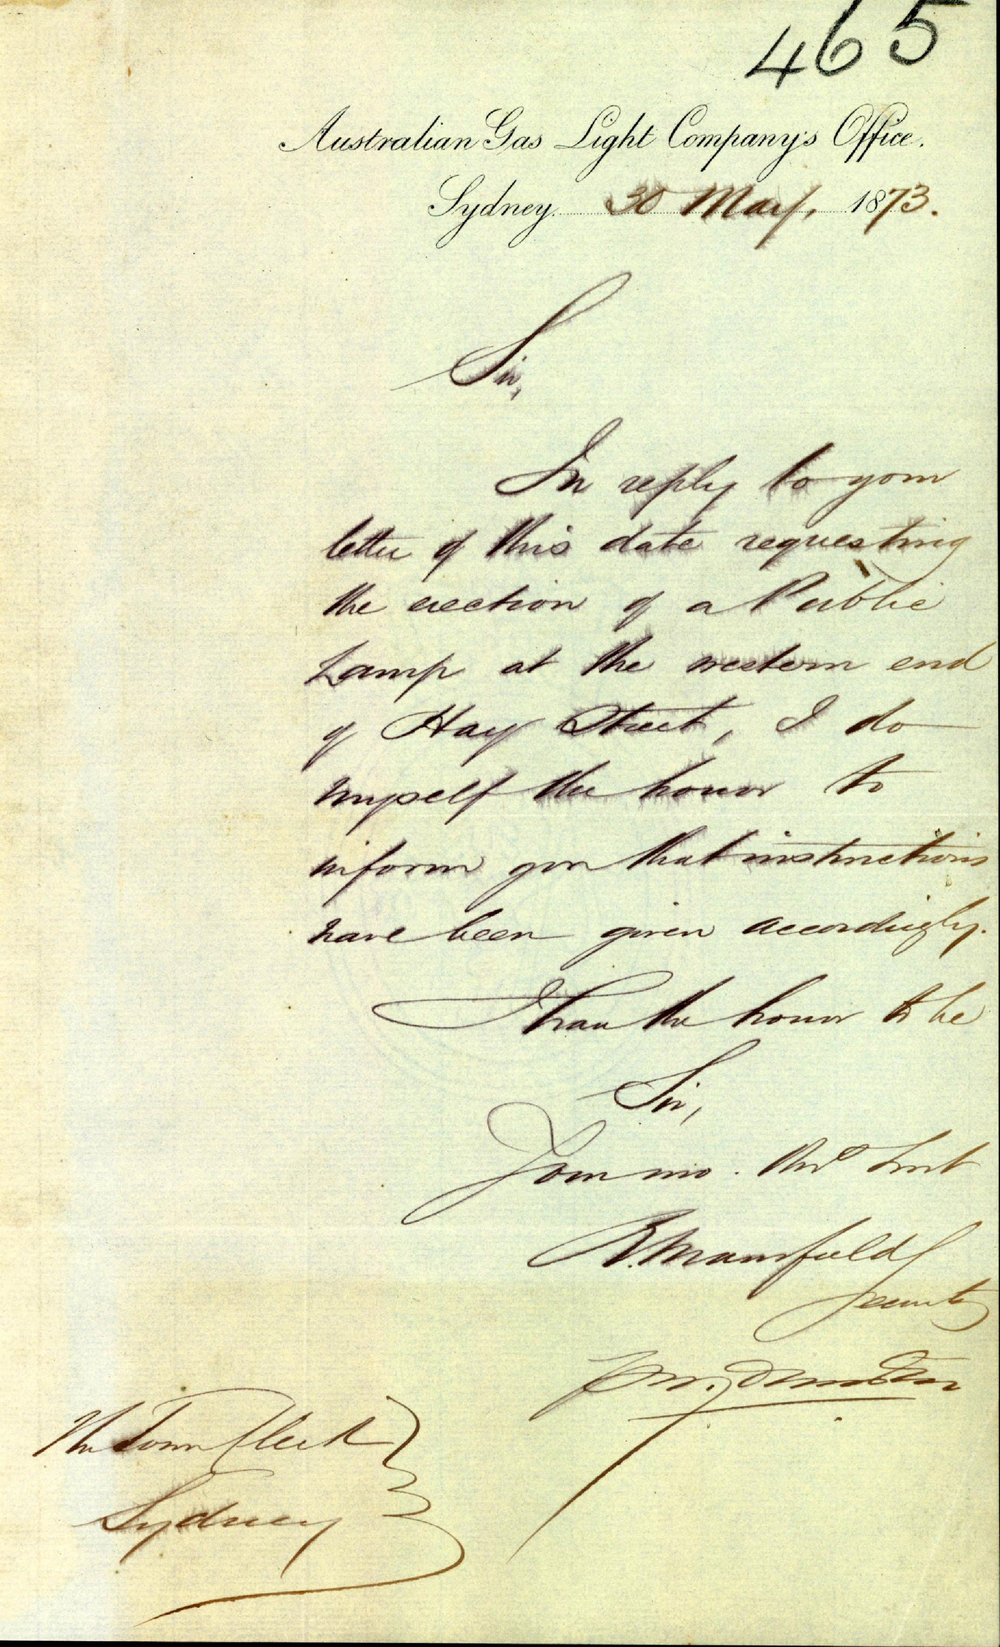 465
Australian Gas Light Company's Office.
Sydney. 30 May, 1873.
Sir,
In reply to your
letter of this date requesting
the erection of a Public
Lamp at the western end
of Hay Street, I do
myself the honor to
inform you that instructions
have been given accordingly.
I have the honor to be
Sir,
Your mo. Servt
R. Mansfield
Secretary
The Town Clerk
Sydney